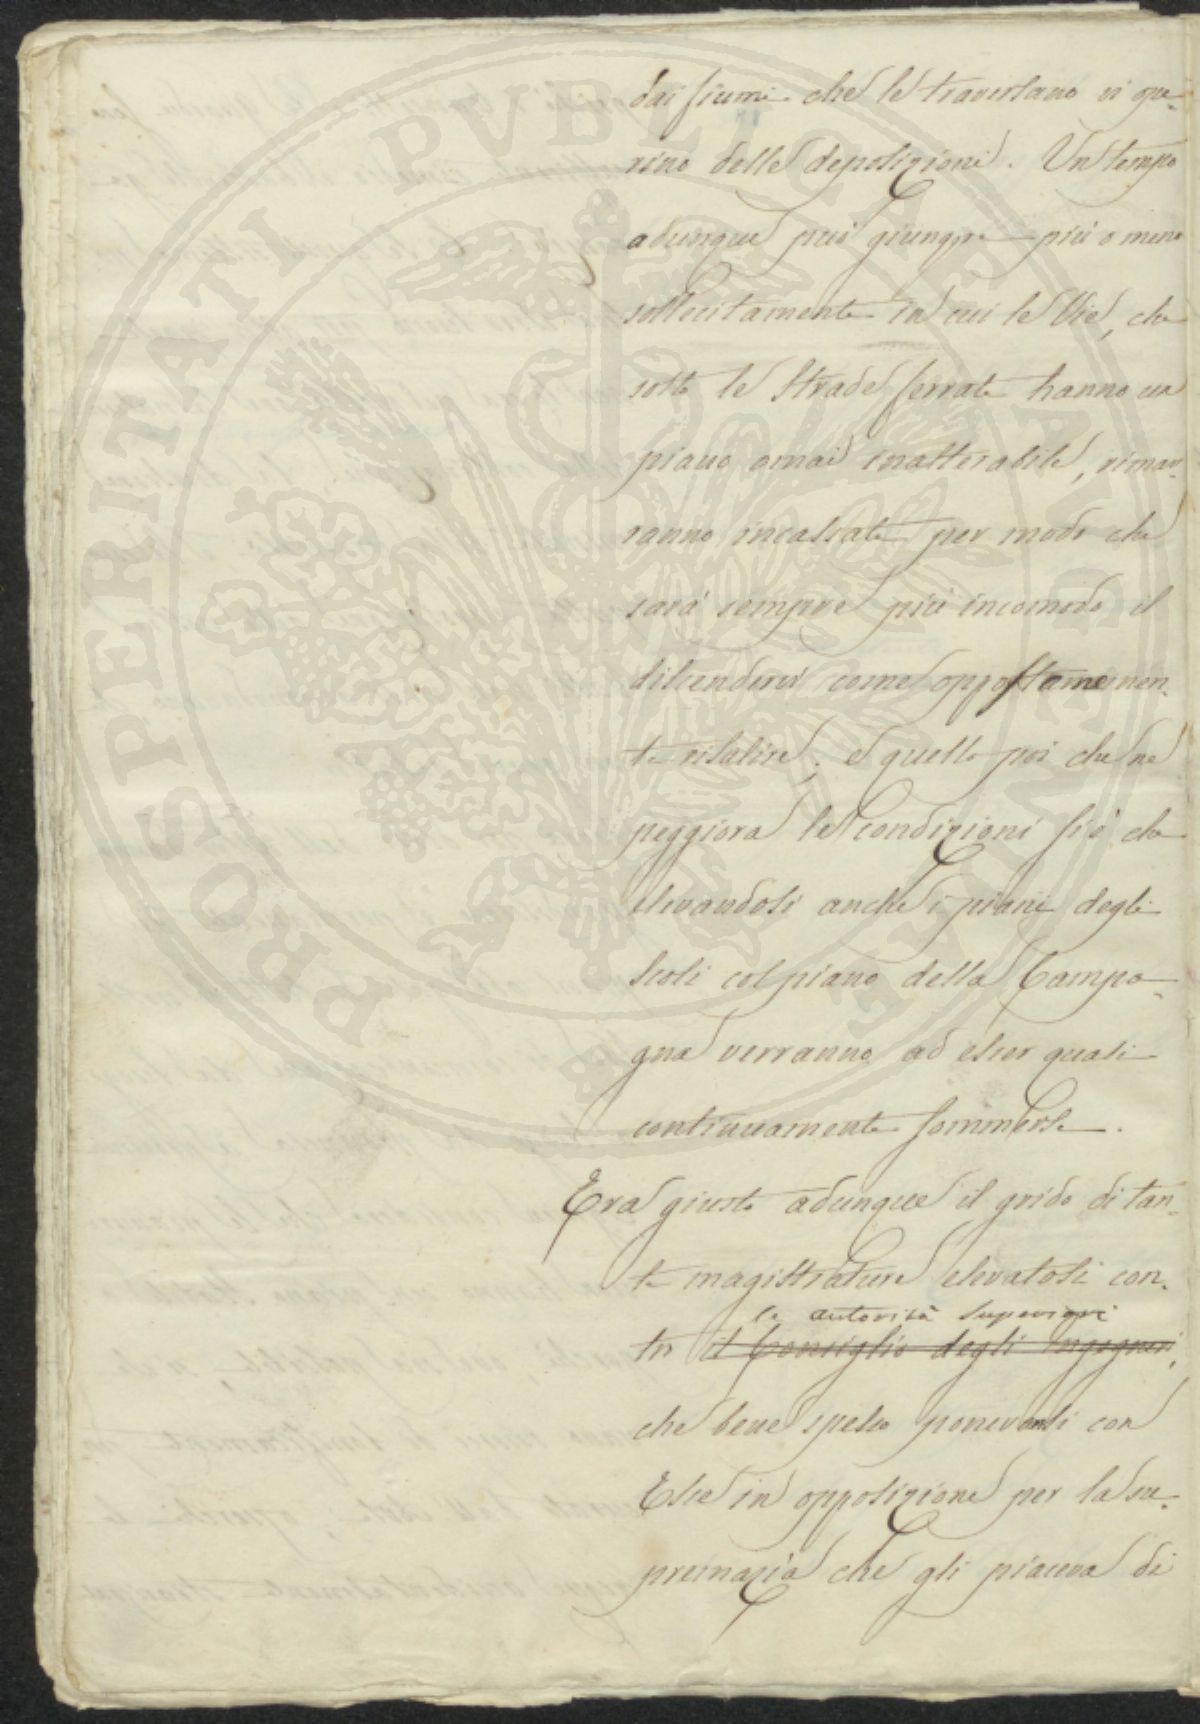 dai fiumi che le traversano vi ope-
rino delle deposizioni. Un tempo
adunque può giungere più o meno
sollecitamente in cui le Vie, che
sotto le Strade ferrate hanno un
piano omai inalterabile, rimar-
ranno incassate per modo che
sarà sempre più incomodo il
discendervi come oppostamenen-
te risalire; e quello poi che ne
peggiora le condizioni si è che
elevandosi anche i piani degli
scoli col piano della Campa-
gna verranno ad esser quasi
continuamente sommerse.
Era giusto adunque il grido di tan-
te magistrature elevatosi con-
le autorità superiori
tro il Consiglio degli Ingegneri,
che bene spesso ponevansi con
Esse in opposizione per la su-
premazia che gli piaceva di
PROSPERITATI PVBLICAE AVGENDAE